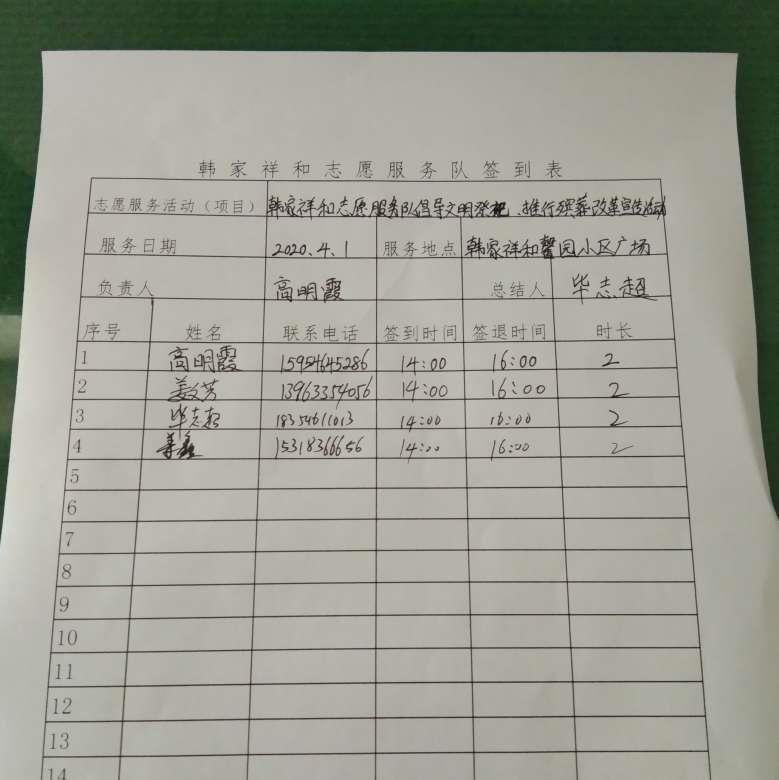 韩家祥和志愿服务队签到表
志愿服务活动（项目） 韩家祥和志愿服务队倡导文明祭祀、推行殡葬改革宣传活动
服务日期 2020.4.1 服务地点 韩家祥和馨园小区广场
负责人 高明霞 总结人 毕志超
序号 姓名 联系电话 签到时间 签退时间 时长
1 高明霞 15954645286 14:00 16:00 2
2 姜文芳 13963354056 14:00 16:00 2
3 毕志超 18354611013 14:00 16:00 2
4 15318366656 14:00 16:00 2
5
6
7
8
9
10
11
12
13
14